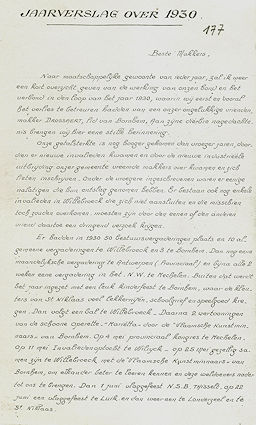 JAARVERSLAG OVER 1930.
177
Beste Makkers,
Naar maatschappelijke gewoonte van ieder jaar, zal ik meer
een kort overzicht geven van de werking van onzen bond en het
verbond in den loop van het jaar 1930, waarin wij eerst en vooral
het verlies te betreuren hadden van een onzer ongelukkige vrienden,
makker DROSSAERT, Lid van Bornhem. Aan zijne dierbre nagedachte-
nis brengen wij hier eene stille herinnering.
Onze getalsterkte is nog hooger gekomen dan vroeger jaren, door
dien er nieuwe invalieden kwamen en door de nieuwe industrieele
uitbreiding onzer gemeente vreemde makkers over kwamen en zich
lieten inschrijven. Onder de vroegere ingeschrevenen waren er eenige
nalatigen die hun ontslag genomen hebben. Er bestaan ook nog enkele
invalieden in Willebroeck die zich niet aansluiten en die misschien
toch zouden overkomen, moesten zij door den eenen of den anderen
vriend daartoe een dringend verzoek krijgen.
Er hadden in 1930 50 Bestuursvergaderingen plaats en 10 al-
gemeene vergaderingen te Willebroeck en 3 te Bornhem. Dan nog eene
maandelijksche vergadering te Antwerpen (Provinciaal) en bijna alle 2
weken eene vergadering in het N.W. te Mechelen. Buiten dat werd
het jaar ingezet met een leuk kinderfeest te Bornhem, waar de klein-
ters van St Niklaas veel lekkernijen, schoolgerief en speelgoed kre-
gen. Dan volgt een bal te Willebroeck. Daarna 2 vertooningen
van de schoone Operette "Marietta" door de "Vlaamsche Kunstmin-
naars" van Bornhem. Op 4 mei provinciaal kongres te Mechelen.
Op 11 Mei Invaliedenoptocht te Wilrijck. Op 25 Mei gezellig sa-
men zijn te Willebroeck met de "Vlaamsche Kunstminnaars" van
Bornhem, om elkander beter te leeren kennen en deze weldoeners nader
tot ons te brengen. Dan 1 juni vlaggefeest N.S.B. Thisselt. Op 22
juni een vlaggefeest te Luik en dan weer een te Lovenjoel en te
St Niklaas.